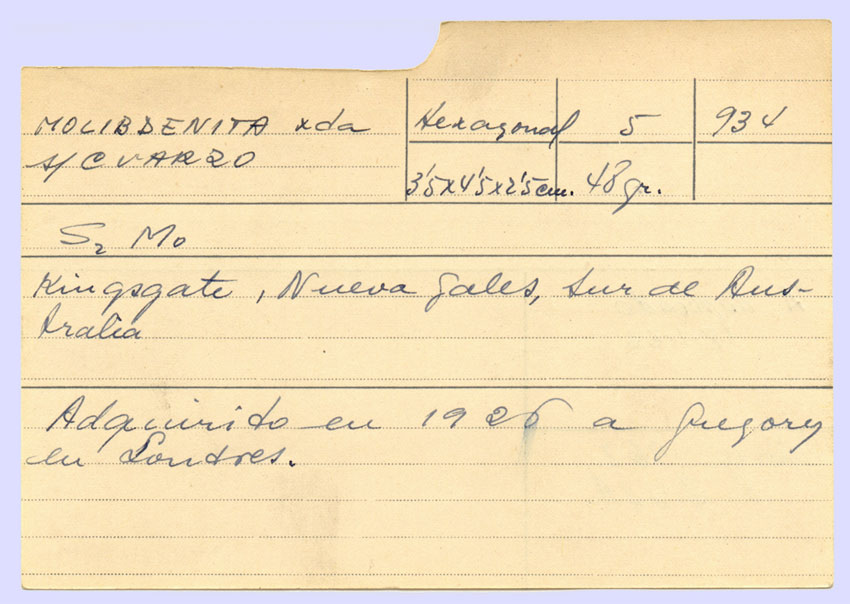 MOLIBDENITA xda Hexagonal 5 934
s/CUARZO 3'5x4'5x2'5cm. 48gr.
S₂ Mo
Kingsgate, Nueva Gales, Sur de Aus-
tralia
Adquirido en 1926 a Gregory
en Londres.